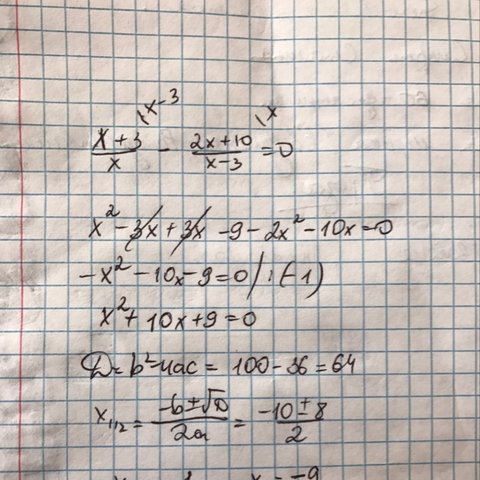 (x-3 (x
x+3/x - 2x+10/x-3 =0
x² - 3x + 3x - 9 - 2x² - 10x = 0
-x² - 10x - 9 = 0 / : (-1)
x² + 10x + 9 = 0
D = b² - 4ac = 100 - 36 = 64
x₁,₂ = -b±√D/2a = -10±8/2
x = -9